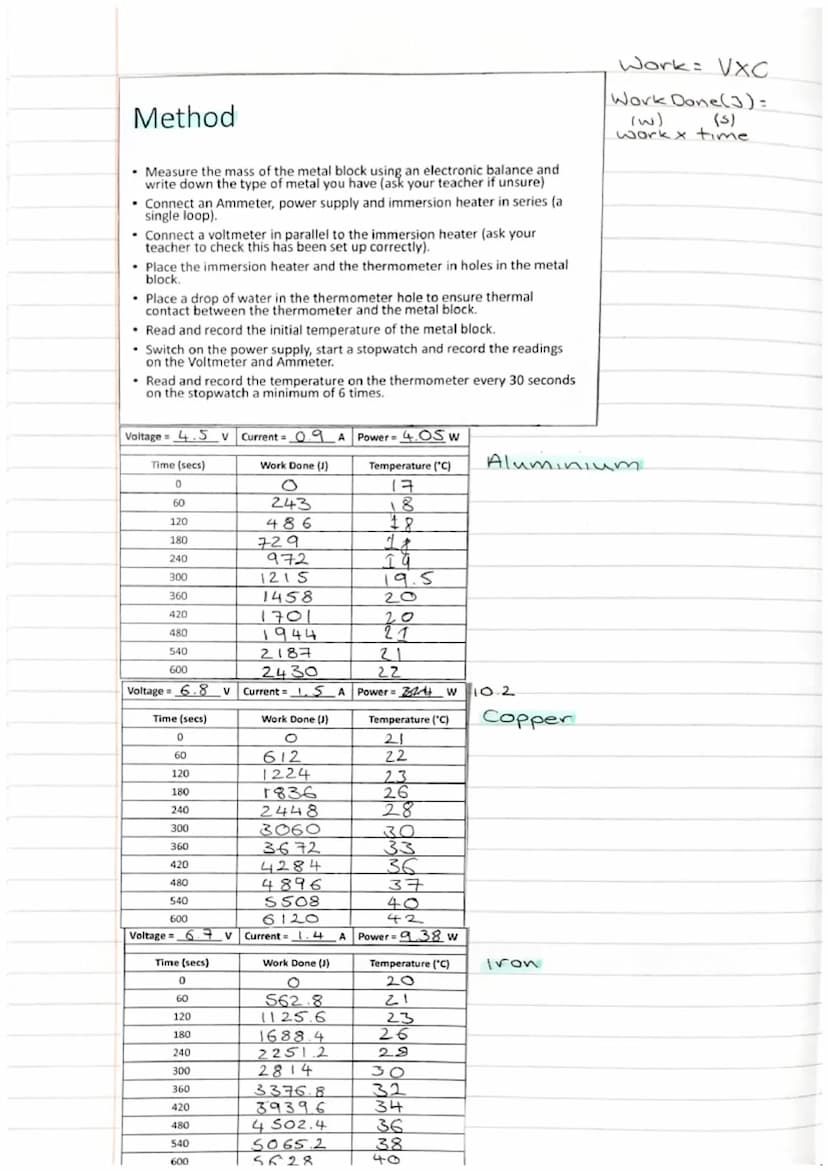 Work = VxC
Work Done(J) =
(W) (s)
work x time
Method
• Measure the mass of the metal block using an electronic balance and
write down the type of metal you have (ask your teacher if unsure)
• Connect an Ammeter, power supply and immersion heater in series (a
single loop).
• Connect a voltmeter in parallel to the immersion heater (ask your
teacher to check this has been set up correctly).
• Place the immersion heater and the thermometer in holes in the metal
block.
• Place a drop of water in the thermometer hole to ensure thermal
contact between the thermometer and the metal block.
• Read and record the initial temperature of the metal block.
• Switch on the power supply, start a stopwatch and record the readings
on the Voltmeter and Ammeter.
• Read and record the temperature on the thermometer every 30 seconds
on the stopwatch a minimum of 6 times.
Voltage = 4.5 V Current = 0.9 A Power = 4.05 W
Aluminium
Time (secs) Work Done (J) Temperature (°C)
0 0 17
60 243 18
120 486 18
180 729
240 972 19
300 1215 19.5
360 1458 20
420 1701 20
480 1944 21
540 2187 21
600 2430 22
Voltage = 6.8 V Current = 1.5 A Power = W 10.2
Copper
Time (secs) Work Done (J) Temperature (°C)
0 0 21
60 612 22
120 1224 23
180 1836 26
240 2448 28
300 3060 30
360 3672 33
420 4284 36
480 4896 37
540 5508 40
600 6120 42
Voltage = 6.7 V Current = 1.4 A Power = 9.38 W
Iron
Time (secs) Work Done (J) Temperature (°C)
0 0 20
60 562.8 21
120 1125.6 23
180 1688.4 26
240 2251.2 29
300 2814 30
360 3376.8 32
420 3939.6 34
480 4502.4 36
540 5065.2 38
600 5628 40